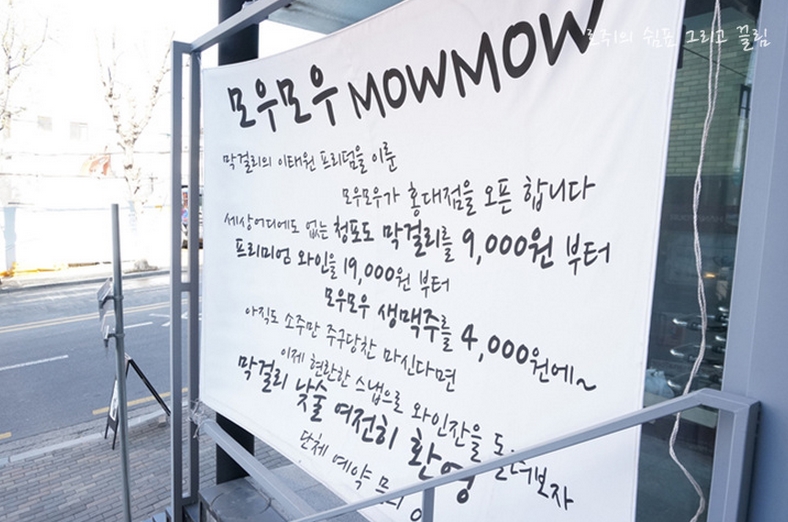 모우모우 MOWMOW
막걸리의 이태원 프리덤을 이룬
모우모우가 홍대점을 오픈 합니다
세상어디에도 없는 청포도 막걸리를 9,000원 부터
프리미엄 와인을 19,000원 부터
모우모우 생맥주를 4,000원에~
아직도 소주만 주구당찬 마신다면
이제 현란한 스냅으로 와인잔을
막걸리 낮술 여전히 환영
단체 예약
그리고 끌림